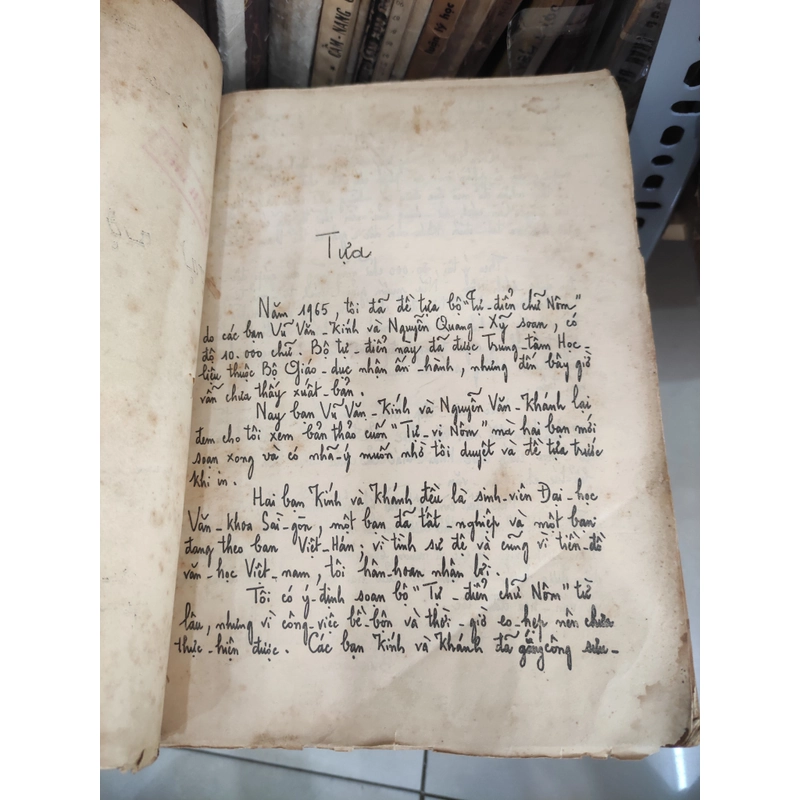 CẨM-NANG
Tựa
Năm 1965, tôi đã đề tựa bộ "Tự-điển chữ Nôm"
do các bạn Vũ Văn-Kính và Nguyễn Quang-Xỹ soạn, có
độ 10.000 chữ. Bộ tự-điển này đã được Trung-tâm Học-
liệu thuộc Bộ Giáo-dục nhận ấn-hành, nhưng đến bây giờ
vẫn chưa thấy xuất-bản.
Nay bạn Vũ Văn-Kính và Nguyễn Văn-Khánh lại
đem cho tôi xem bản thảo cuốn "Tự-vị Nôm" mà hai bạn mới
soạn xong và có nhã-ý muốn nhờ tôi duyệt và đề tựa trước
khi in.
Hai bạn Kính và Khánh đều là sinh-viên Đại-học
Văn-khoa Sài-gòn, một bạn đã tốt-nghiệp và một bạn
đang theo ban Việt-Hán; vì tình sư đệ và cũng vì tiền-đồ
văn-học Việt-nam, tôi hân-hoan nhận lời.
Tôi có ý-định soạn bộ "Tự-điển chữ Nôm" từ
lâu, nhưng vì công-việc bề-bộn và thời-giờ eo-hẹp nên chưa
thực-hiện được. Các bạn Kính và Khánh đã gắng công sưu-